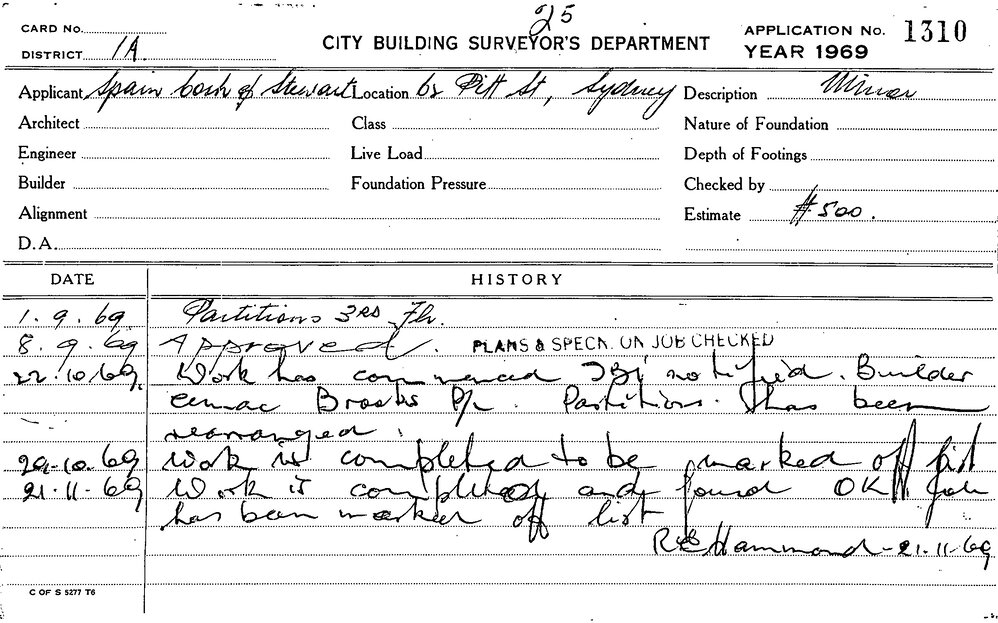 25
CARD No.
DISTRICT 1A
CITY BUILDING SURVEYOR'S DEPARTMENT
APPLICATION No. 1310
YEAR 1969
Applicant Spain Cosh & Stewart Location 62 Pitt St, Sydney Description Minor
Architect Class Nature of Foundation
Engineer Live Load Depth of Footings
Builder Foundation Pressure Checked by
Alignment Estimate $500.
D.A.
DATE HISTORY
1.9.69 Partitions 3RD Flr.
8.9.69 Approved. PLANS & SPECN. ON JOB CHECKED
22.10.69. Work has commenced notified. Builder
Brooks P/L. Partitions. has been
rearranged.
29.10.69 Work is completed to be marked off list
21.11.69 Work is completed and found OK Job
has been marked off list
Hammond - 21.11.69
C OF S 5277 T6